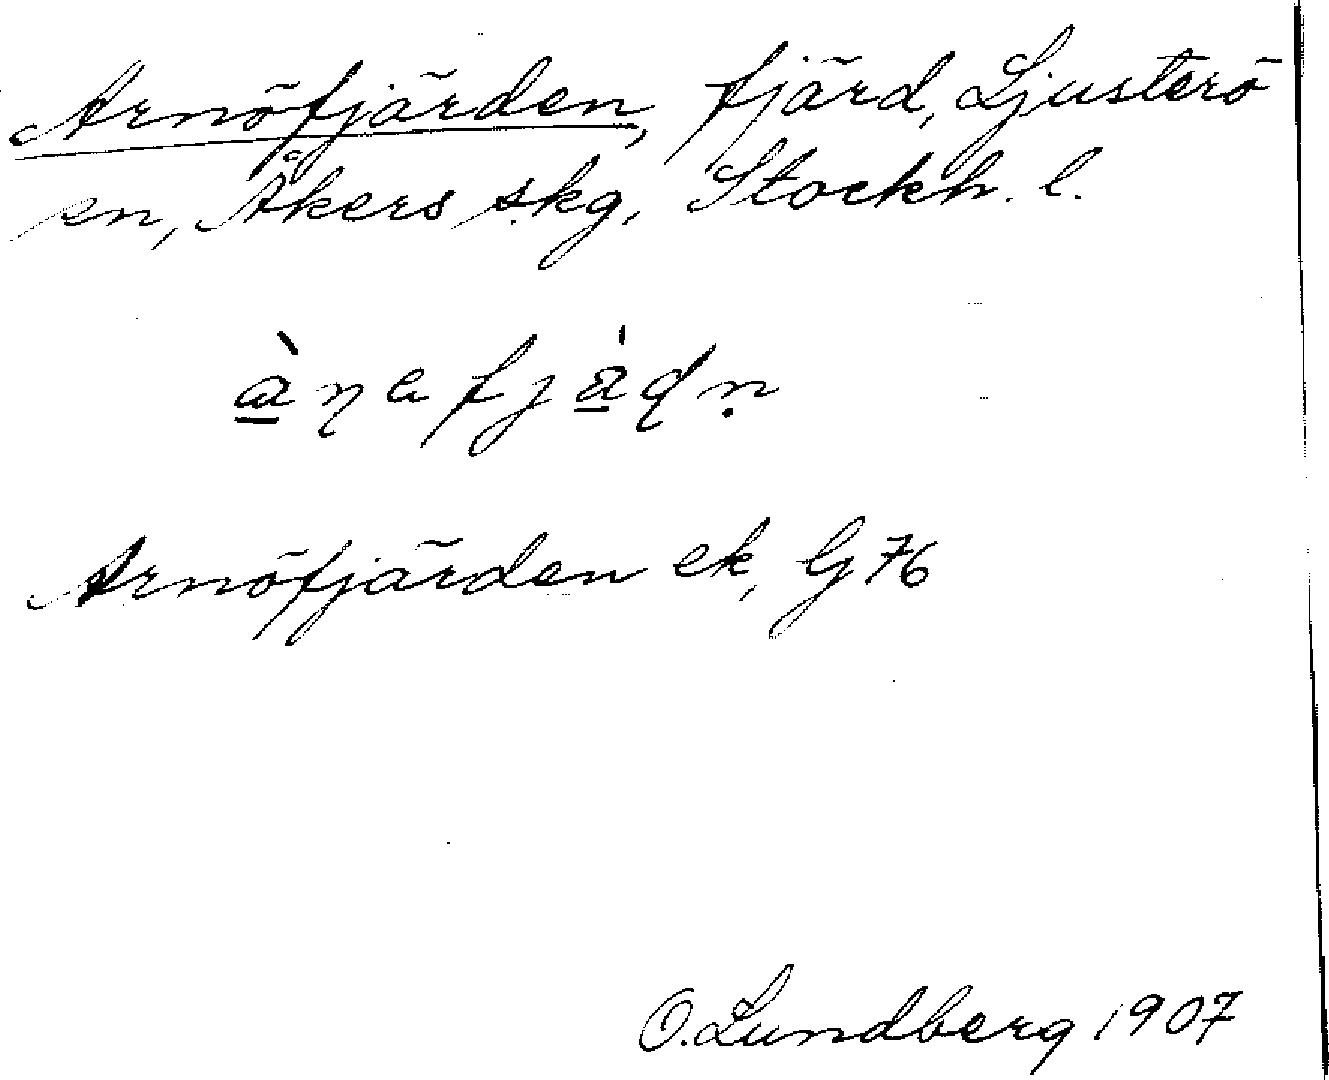 Arnöfjärden, fjärd, Ljusterö
sn, Åkers skg, Stockh. l.
Arnöfjärden ek, G 76
O. Lundberg 1907